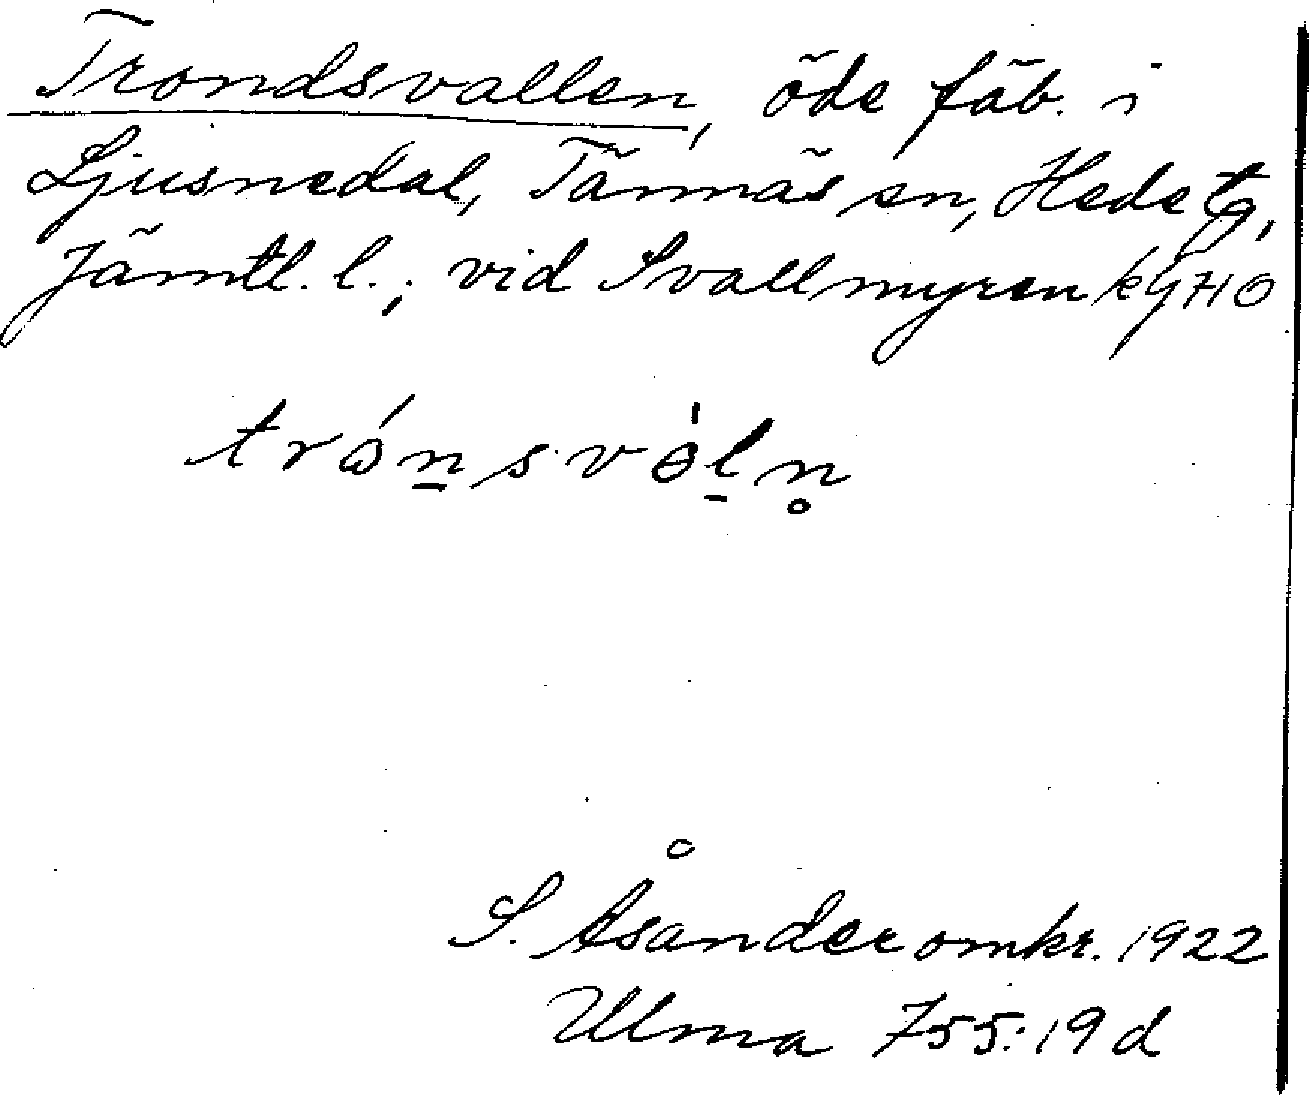 Trondsvallen, öde fäb. i
Ljusnedal, Tännäs sn, Hede tg,
Jämtl. l.; vid Svallmyren
S. Åsander omkr. 1922
Ulma 755:19 d